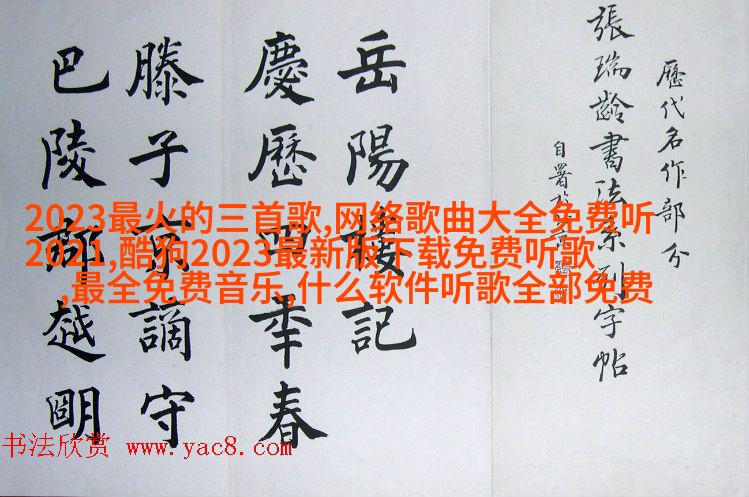 歷代名作部分
張瑞齡書法系列字帖
自署
岳陽樓記
慶歷四年春
滕子京謫守
巴陵郡越明
2023最火的三首歌,网络歌曲大全免费听
2021,酷狗2023最新版下载免费听歌
,最全免费音乐,什么软件听歌全部免费
书法欣赏 www.yac8.com